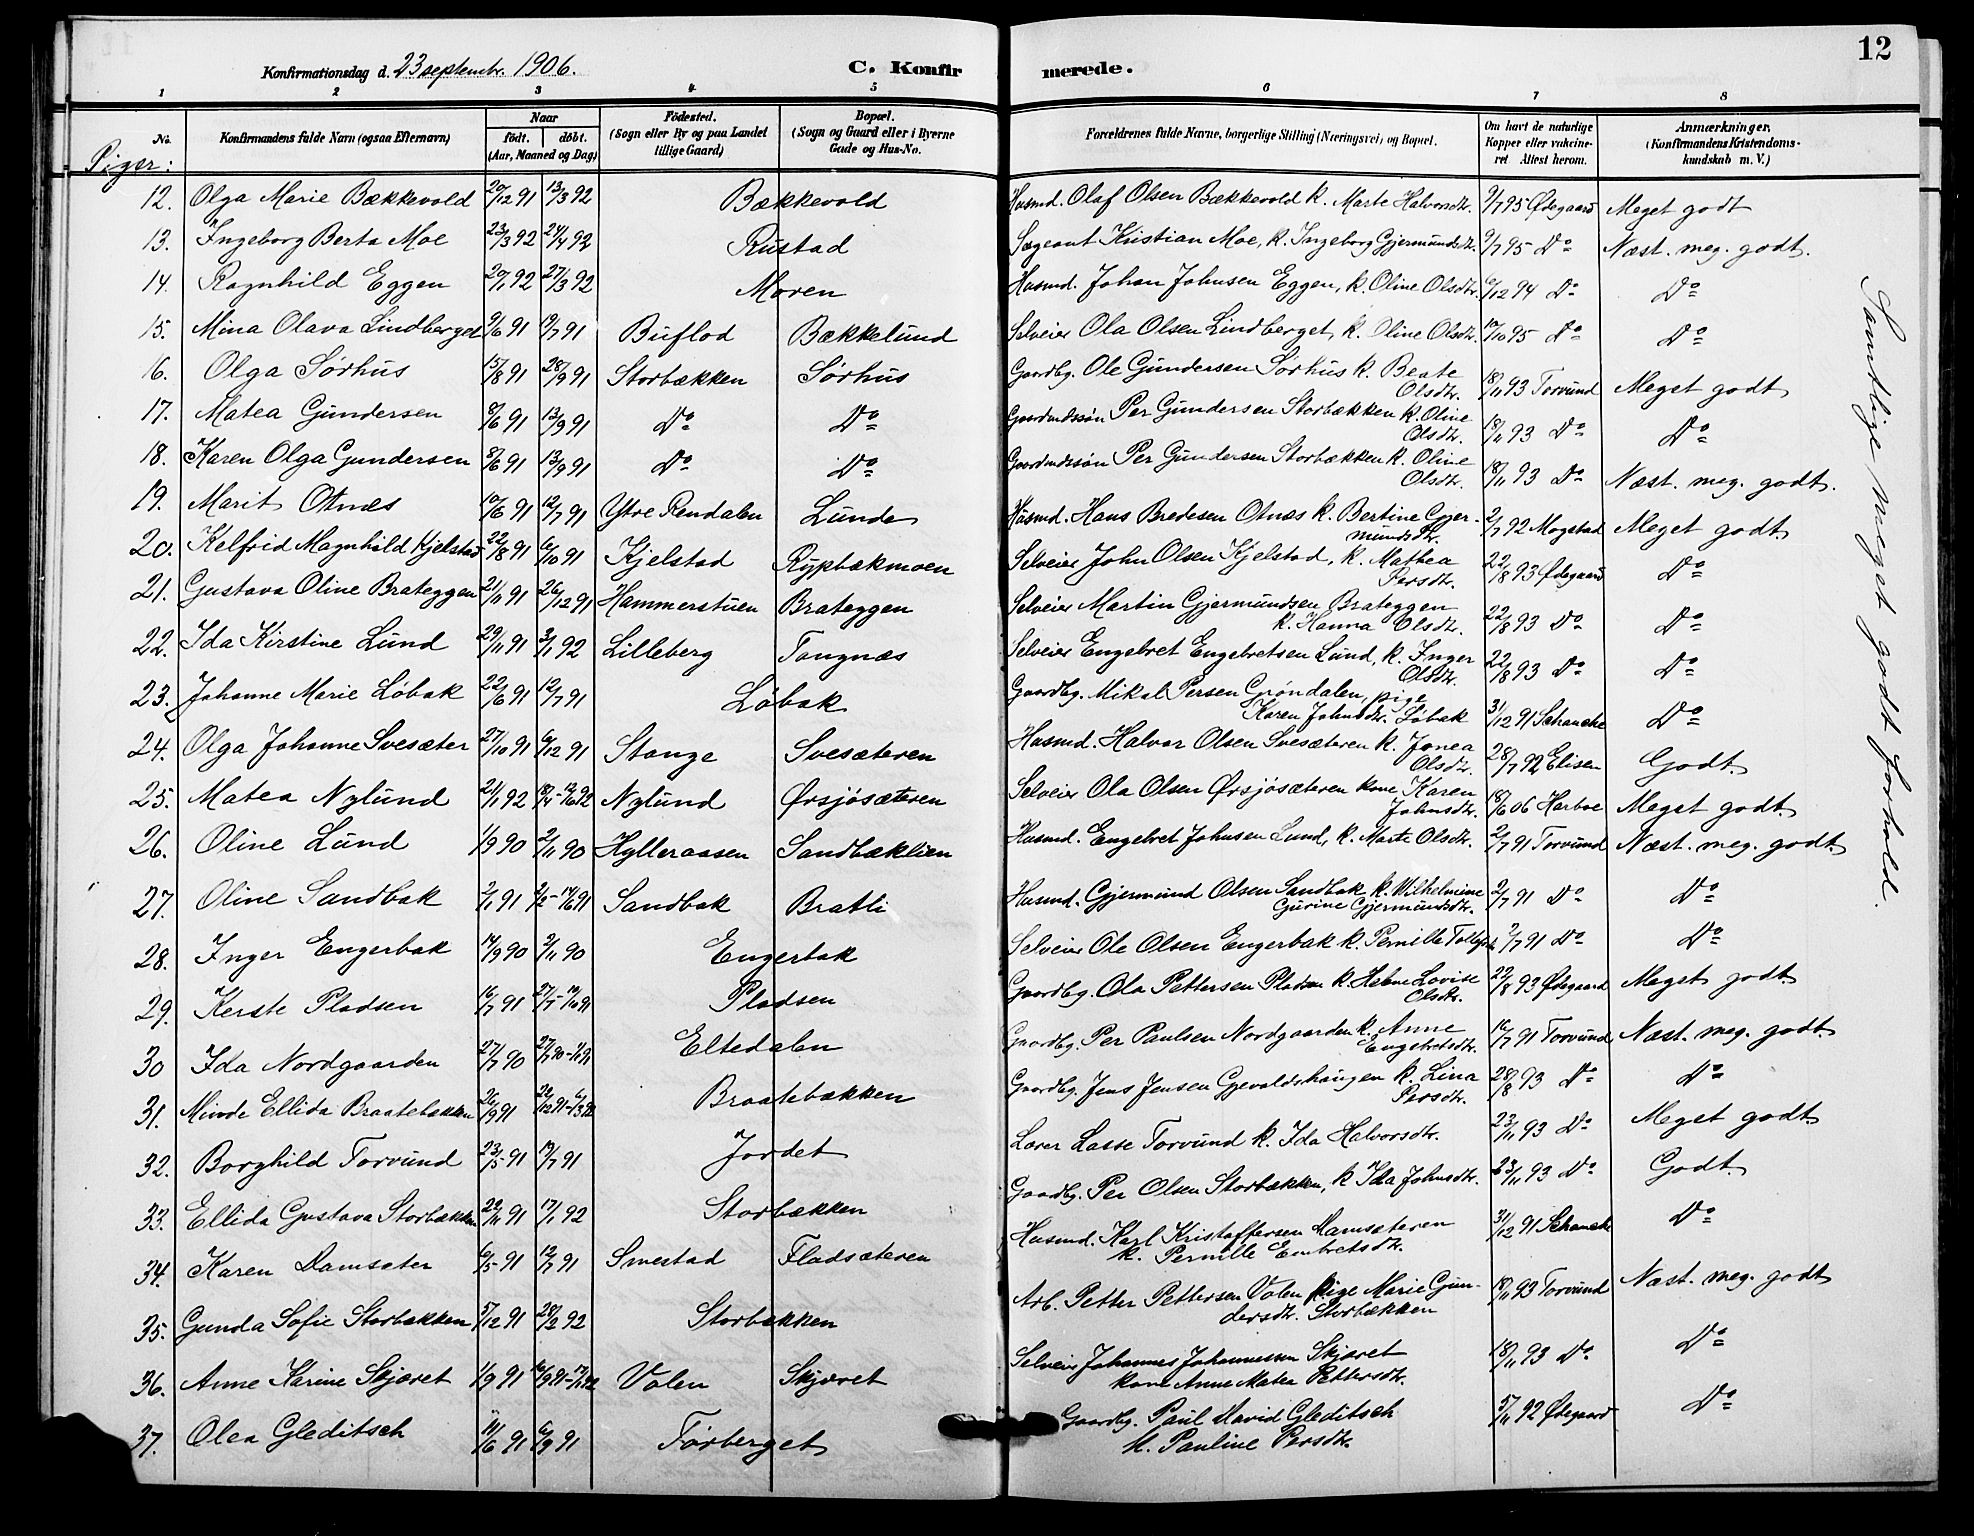 Konfirmationsdag d. 23 septembr. 1906.
C. Konfir
merede.
12
1 2 3 4 5 6 7 8
No.
Konfirmandens fulde Navn (ogsaa Efternavn)
Naar
født. døbt.
(Aar, Maaned og Dag)
Fødested.
(Sogn eller By og paa Landet
tillige Gaard)
Bopæl.
(Sogn og Gaard eller i Byerne
Gade og Hus-No.
Forældrenes fulde Navne, borgerlige Stilling (Næringsvei) og Bopæl.
Om havt de naturlige
Kopper eller vakcine-
ret Attest herom.
Anmærkninger.
(Konfirmandens Kristendoms-
kundskab m. V.)
Piger:
12. Olga Marie Bækkevold 20/12 91 13/3 92 Bækkevold Husmd. Olaf Olsen Bækkevold k. Marte Halvorsdtr. 9/7 95 Ødegaard Meget godt
13. Ingeborg Berta Moe 23/3 92 24/4 92 Rustad Sergeant Kristian Moe, k. Ingeborg Gjermundsdtr. 9/7 95 Do Næst. meg. godt.
14. Ragnhild Eggen 20/1 92 27/3 92 Moren Husmd. Johan Johnsen Eggen, k. Oline Olsdtr. 6/12 94 Do Do
15. Mina Olava Lindberget 9/6 91 19/7 91 Buflod Bækkelund Selveier Ola Olsen Lindberget, k. Oline Olsdtr. 10/10 95 Do Do
16. Olga Sørhus 15/8 91 28/9 91 Storbækken Sørhus Gaardbg. Ole Gundersen Sørhus k. Beate
Olsdtr. 18/11 93 Torvund Meget godt
17. Matea Gundersen 8/6 91 13/9 91 Do Do Gaardmdssøn Per Gundersen Storbækken k. Oline
Olsdtr. 18/11 93 Do Do
18. Karen Olga Gundersen 8/6 91 13/9 91 Do Do Gaardmdssøn Per Gundersen Storbækken k. Oline
Olsdtr. 18/11 93 Do Næst. meg. godt.
19. Marit Otnes 10/6 91 12/7 91 Ytre Rendalen Lunde Husmd. Hans Bredesen Otnæs k. Bertine Gjer-
mundsdtr. 2/7 92 Mogstad Meget godt
20. Kelfrid Magnhild Kjelstad 22/8 91 6/10 91 Kjelstad Rypbakmoen Selveier John Olsen Kjelstad, k. Mathea
Persdtr. 22/8 93 Ødegaard Do
21. Gustava Oline Brateggen 21/11 91 26/12 91 Hammerstuen Brateggen Selveier Martin Gjermundsen Brateggen
k. Hanna Olsdtr. 22/8 93 Do Do
22. Ida Kirstine Lund 29/11 91 3/1 92 Lilleberg Tangnæs Selveier Engebret Engebretsen Lund, k. Inger
Olsdtr. 22/8 93 Do Do
23. Johanne Marie Løbak 22/6 91 12/7 91 Løbak Gaardbg. Mikal Persen Grøndalen, pige
Karen Johnsdtr. Løbak 31/12 91 Schanche Do
24. Olga Johanne Svesæter 27/10 91 6/12 91 Stange Svesæteren Husmd. Halvor Olsen Svesæteren k. Jonea
Olsdtr. 28/7 92 Elisen Godt.
25. Matea Nylund 21/1 92 Nylund Ørsjøsæteren Selveier Ola Olsen Ørsjøsæteren kone Karen
Johnsdtr. 18/6 06 Harboe Meget godt.
26. Oline Lund 1/9 90 2/11 90 Hylleraasen Sandbæklien Husmd. Engebret Johnsen Lund, k. Marte Olsdtr. 2/7 91 Torvund Næst. meg. godt.
27. Oline Sandbak 2/1 91 2/2 - 14/6 91 Sandbak Bratli Husmd. Gjermund Olsen Sandbak k. Wilhelmine
Gurine Gjermundsdtr. 2/7 91 Do Do
28. Inger Engerbak 14/9 90 2/11 90 Engerbak Selveier Ole Olsen Engerbak k. Pernille 2/7 91 Do Do
29. Kerste Pladsen 16/7 91 Pladsen Gaardbg. Ola Pettersen Pladsen k. Helene Lovise
Olsdtr. 22/8 93 Ødegaard Meget godt.
30 Ida Nordgaarden 27/7 90 Eltedalen Gaardbg. Per Paulsen Nordgaarden k. Anne
Engebretsdtr. 16/7 91 Torvund Næst. meg. godt.
31. Minde Ellida Braatebækken 26/9 91 Braatebækken Gaardbg. Jens Jensen Gjevaldshaugen k. Lina
Persdtr. 28/8 93 Do Do
32. Borghild Torvund 23/5 91 19/7 91 Jordet Lærer Lasse Torvund k. Ida Halvorsdtr. 23/11 93 Do Meget godt.
33. Ellida Gustava Storbækken 22/11 91 17/1 92 Storbækken Gaardbg. Per Olsen Storbækken, k Ida Johnsdtr. 23/11 93 Do Godt.
34. Karen Damsæter 6/5 91 12/7 91 Smestad Fladsæteren Husmd. Karl Kristoffersen Damsæteren
k. Pernille Embretsdtr. 31/12 91 Schanche Do
35. Gunda Sofie Storbækken 5/12 91 28/2 92 Storbækken Arb. Petter Pettersen Volen pige Marie Gun-
dersdtr. Storbækken 18/11 93 Torvund Næst. meg. godt
36. Anne Karine Skjæret 1/9 91 Volen Skjæret Selveier Johannes Johannessen Skjæret
kone Anne Matea Pettersdtr. 18/11 93 Do Do
37. Olea Gleditsch 11/6 91 6/9 91 Førberget Gaardbg. Paul David Gleditsch
k. Pauline Persdtr. 5/11 92 Ødegaard Do
Samtlige meget godt forhold.